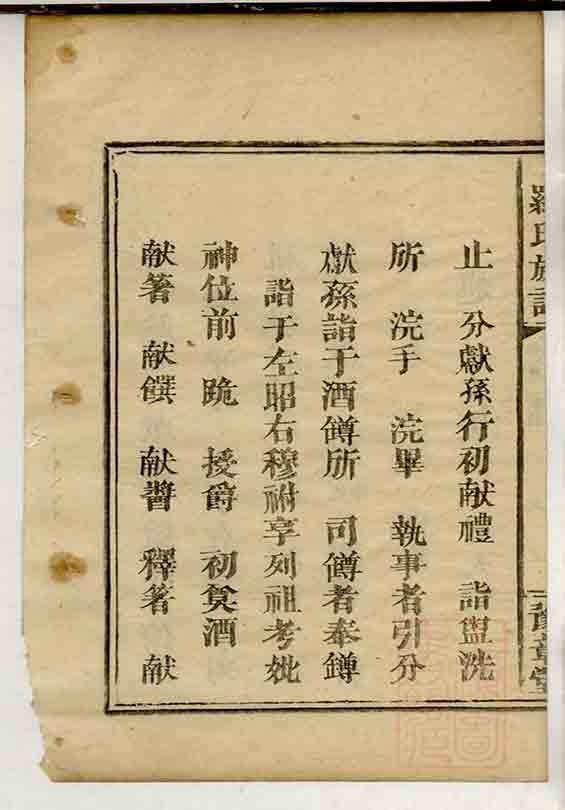 羅氏族譜
豫章堂
止 分獻孫行初献禮 詣盥洗
所 浣手 浣畢 執事者引分
獻孫詣于酒罇所 司罇者奉罇
詣于左昭右穆祔享列祖考妣
神位前 跪 授爵 初奠酒
献箸 献饌 献醬 釋箸 献